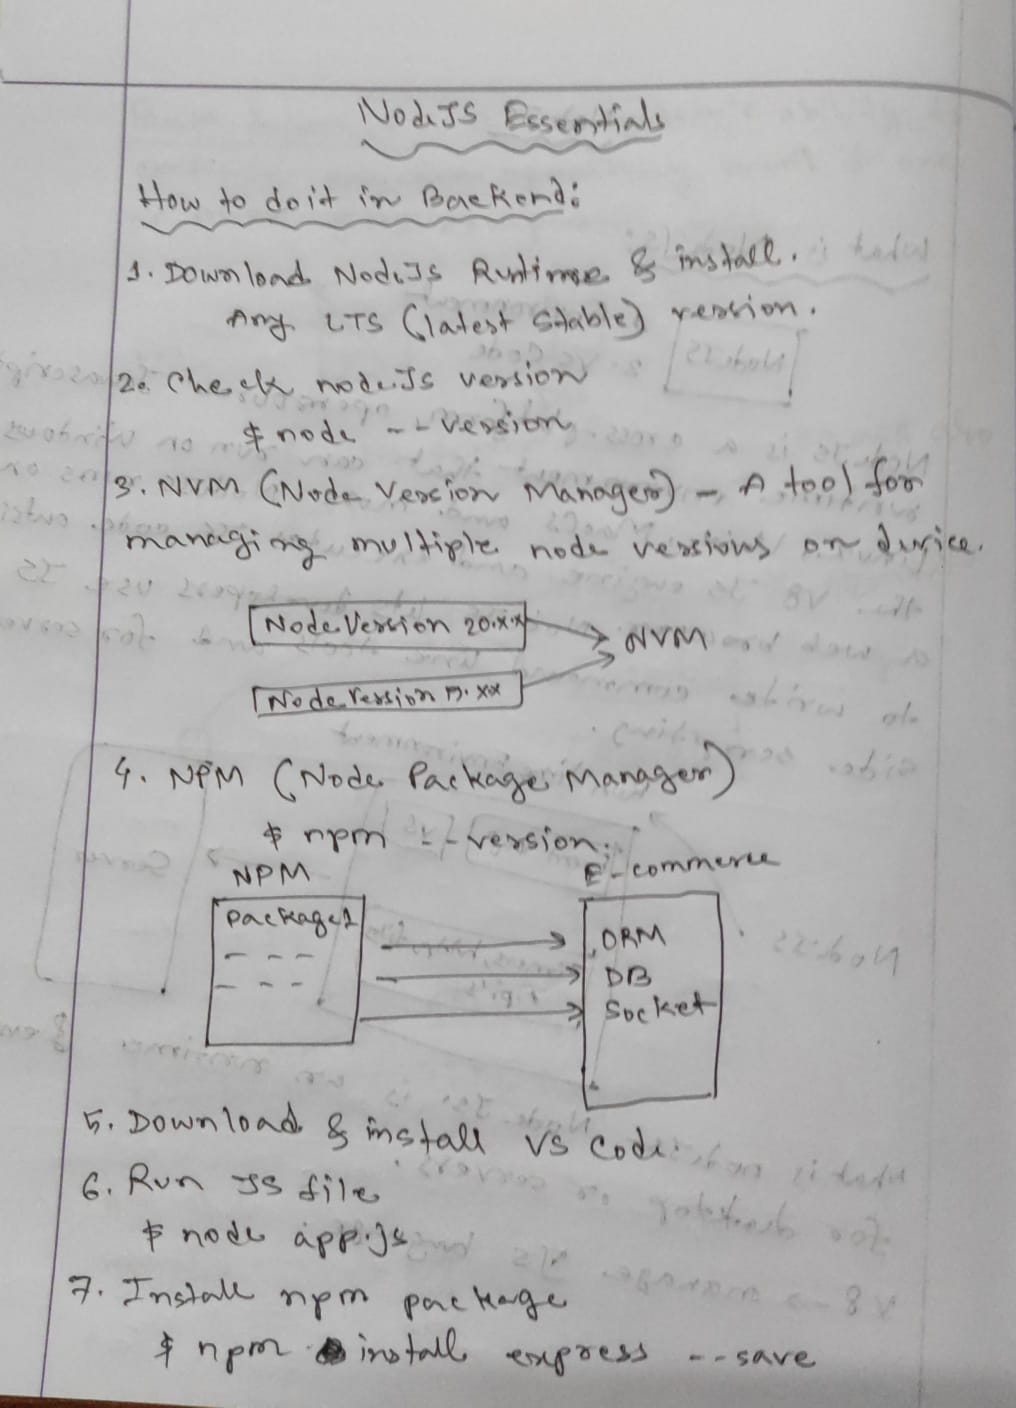 NodeJS Essentials
How to do it in Backend:
1. Download NodeJs Runtime & install.
Any LTS (latest stable) version.
2. Check node.Js version
$ node --version
3. NVM (Node Version Manager) - A tool for
managing multiple node versions on device.
Node Version 20.xx
NVM
Node Version 17.xx
4. NPM (Node Package Manager)
$ npm --version.
NPM
E-commerce
package1
ORM
DB
Socket
5. Download & install VS Code.
6. Run JS file
$ node app.js
7. Install npm package
$ npm install express --save